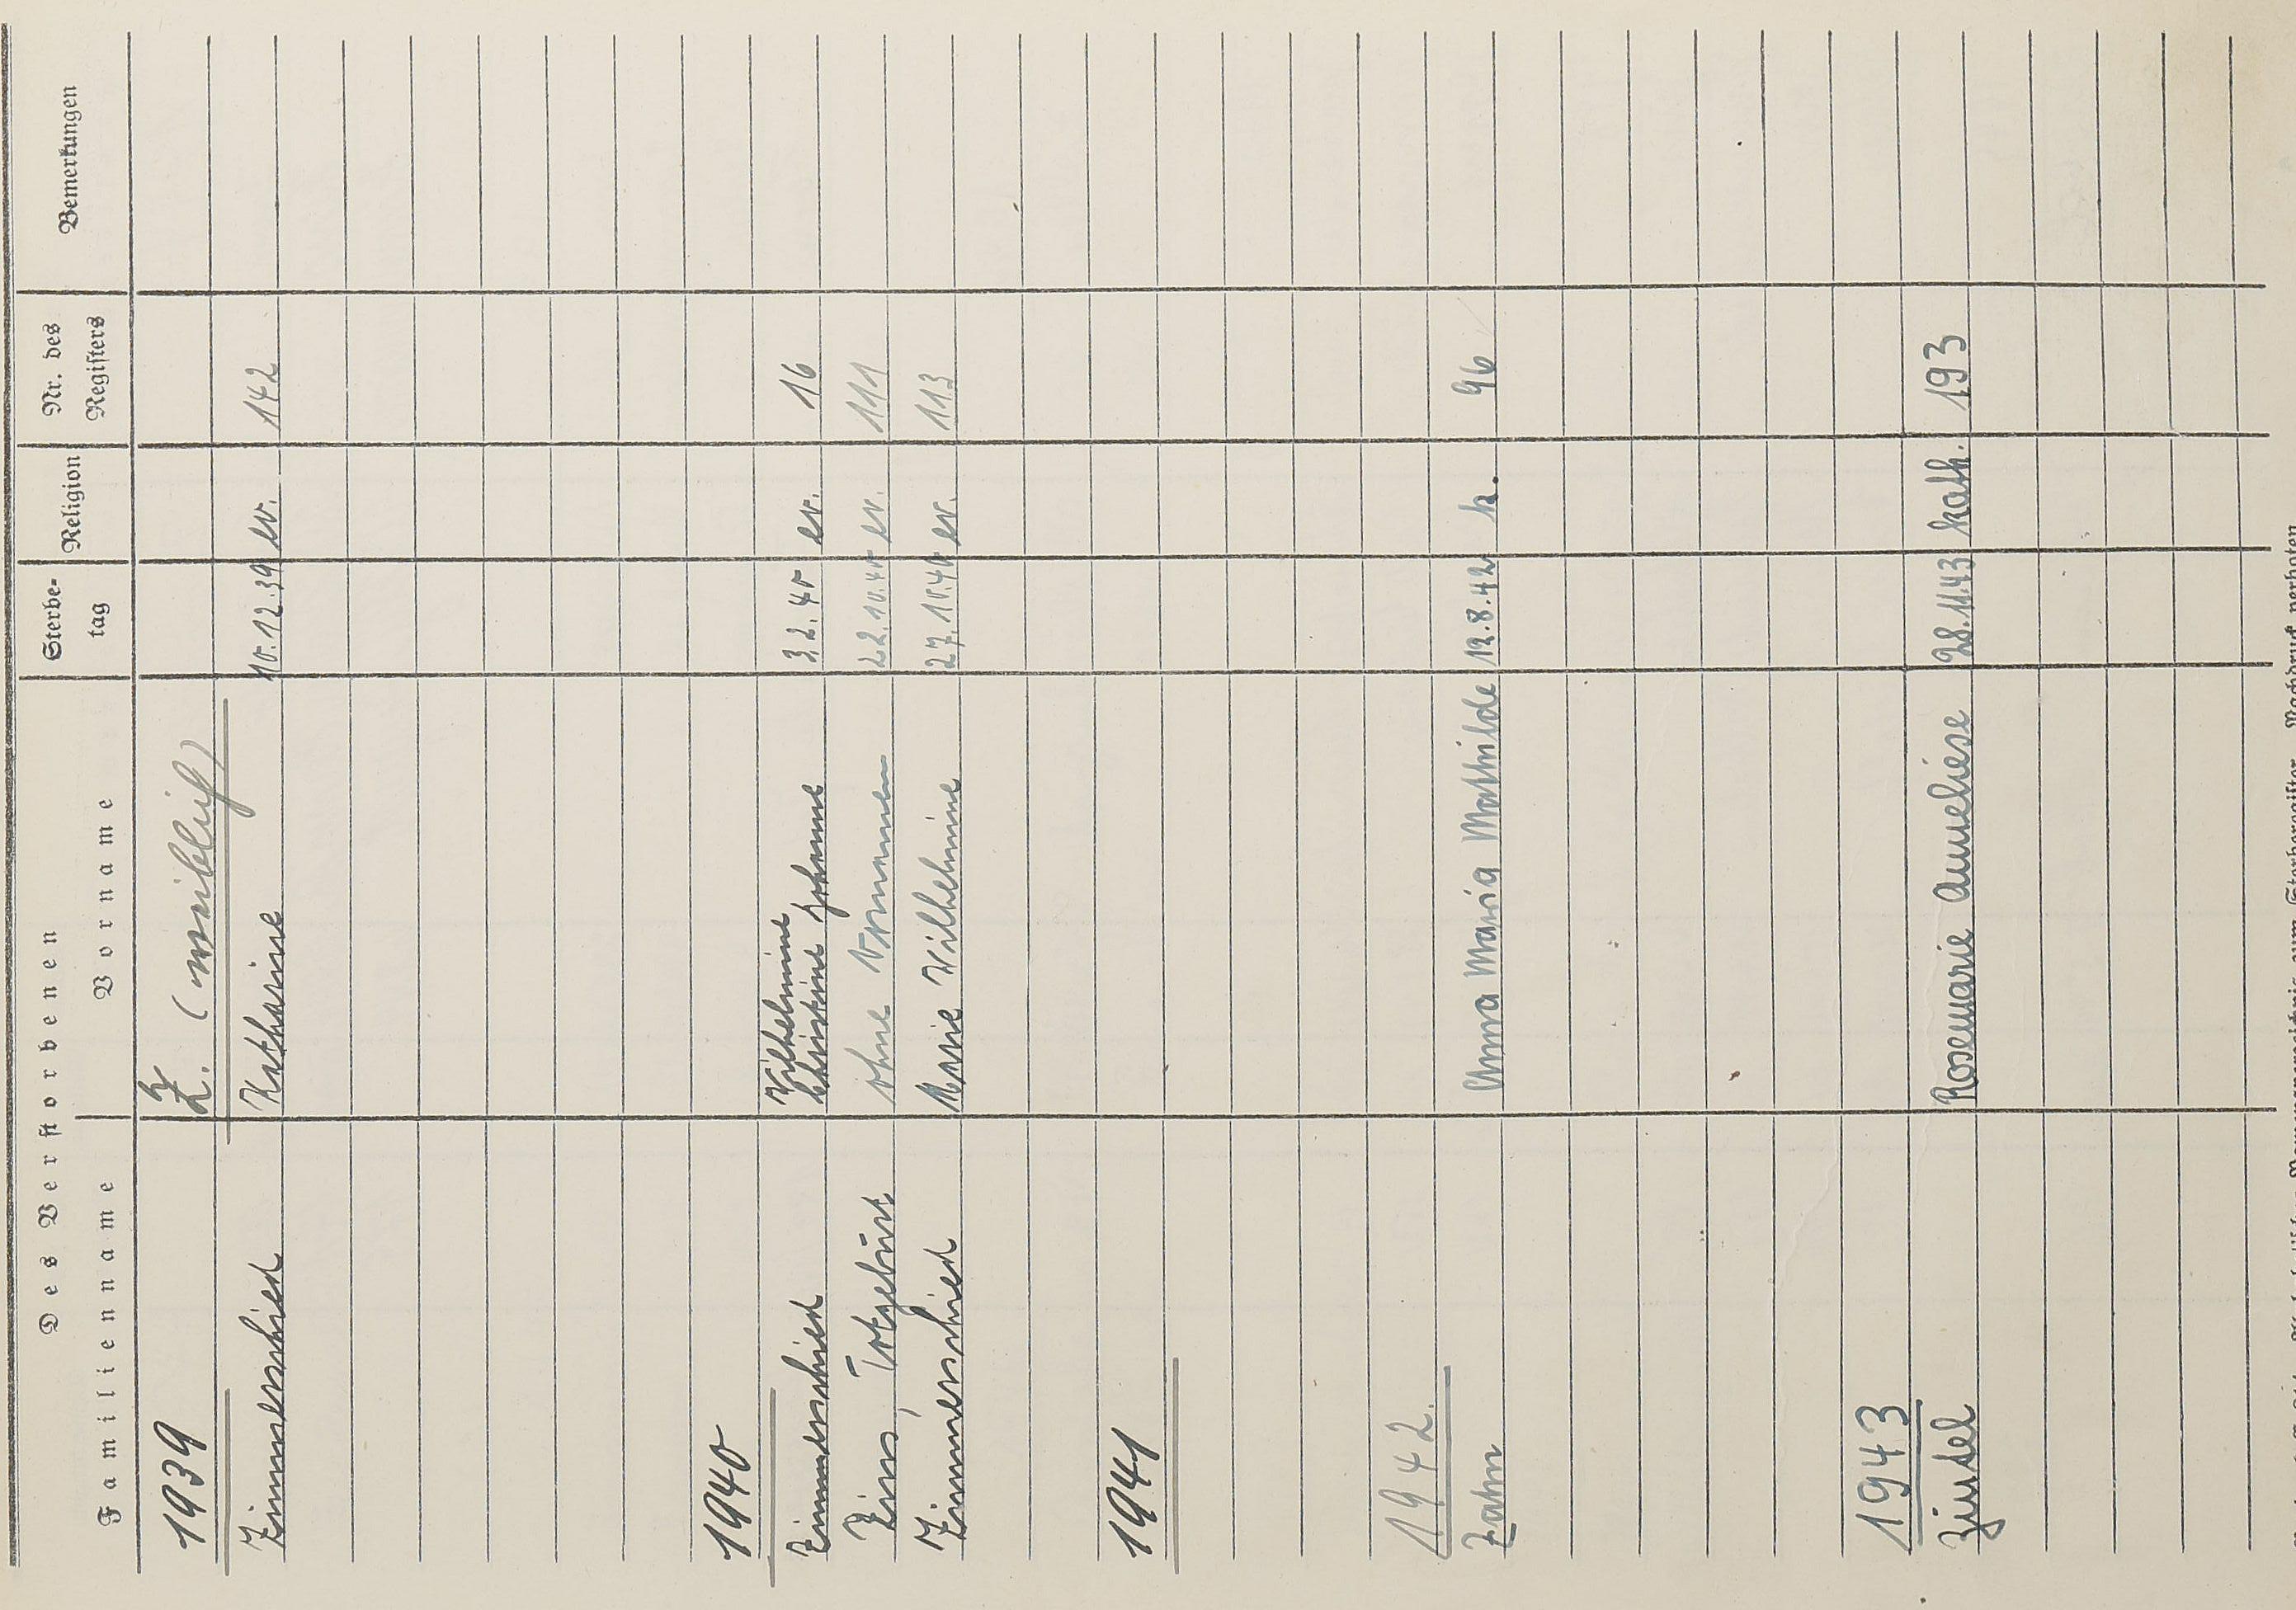 Des Verstorbenen
Familienname Vorname Sterbetag Religion Nr. des Registers Bemerkungen
1939 Z. (weiblich)
Zimmerschied Katharine 10.12.39 ev. 142
1940
Zimmerschied Wilhelmine
Christine Johanne 3.2.40 ev. 16
Zins, Totgeburt ohne Vornamen 22.10.40 ev. 111
Zimmerschied Marie Wilhelmine 27.10.40 ev. 113
1941
1942.
Zahn Anna Maria Mathilde 12.8.42 k. 96
1943
Zindel Rosemarie Anneliese 28.11.43 kath. 193
Namenverzeichnis zum Sterberegister. Nachdruck verboten